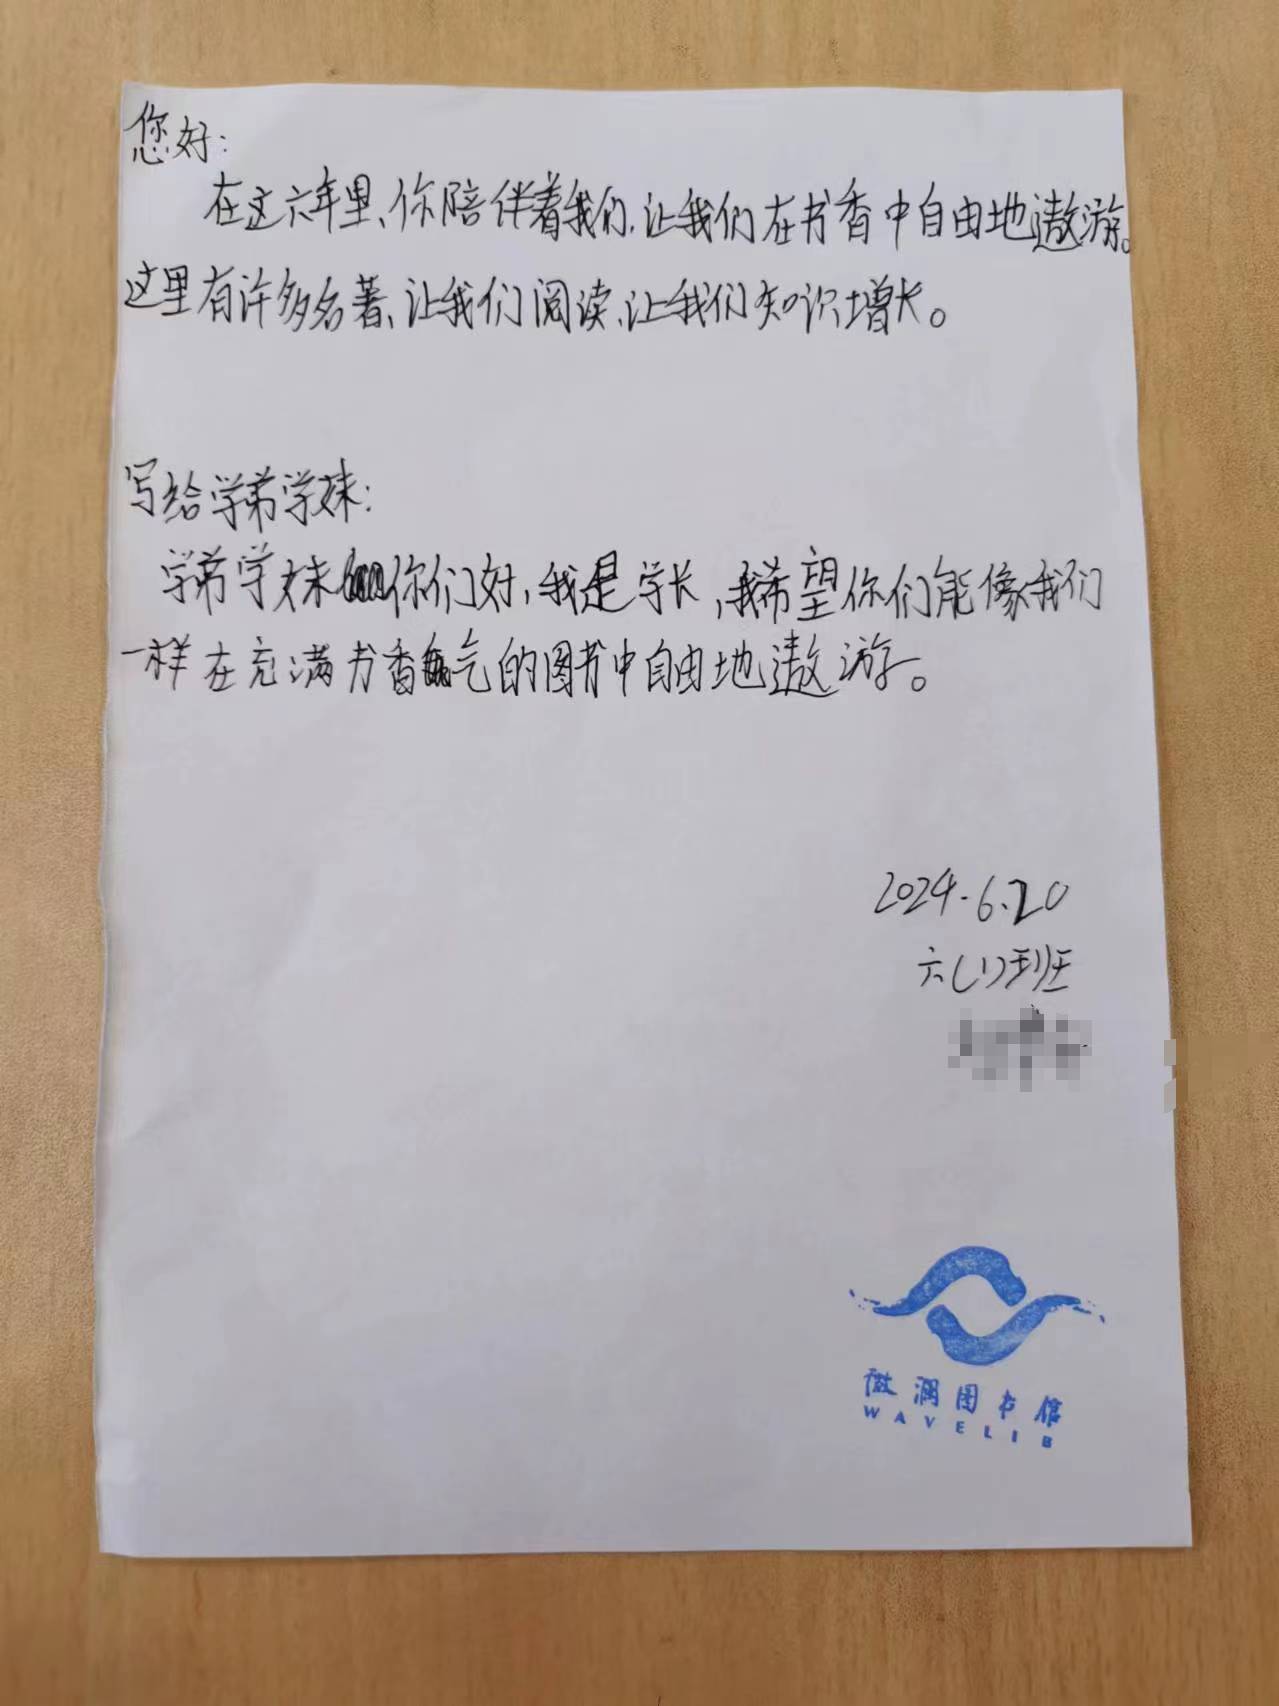 您好:
在这六年里、你陪伴着我们,让我们在书香中自由地遨游。
这里有许多名著、让我们阅读、让我们知识增长。
写给学弟学妹:
学弟学妹你们好,我是学长,我希望你们能像我们
一样在充满书香气的图书中自由地遨游。
2024.6.20
六(1)班
微澜图书馆
WAVELIB